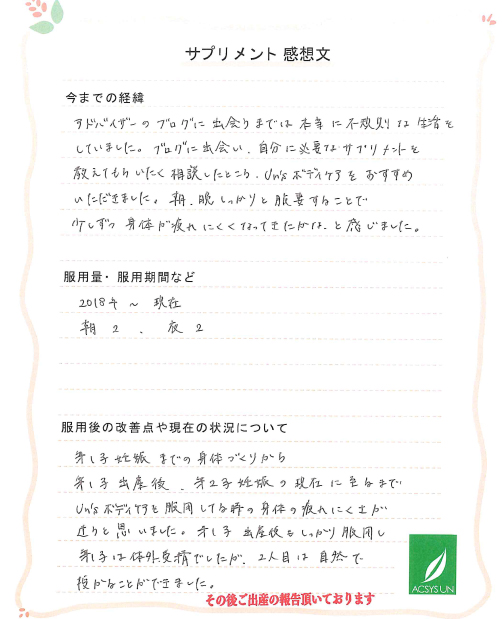 サプリメント 感想文
今までの経緯
アドバイザーのブログに出会うまでは本等に不規則な生活を
していました。ブログに出会い、自分に必要なサプリメントを
教えてもらいたく相談したところ、Un'sボディケアをおすすめ
いただきました。朝、晩しっかりと服要することで
少しずつ身体が疲れにくくなってきたかな、と感じました。
服用量・服用期間など
2018年 ～ 現在
朝 2 、 夜 2
服用後の改善点や現在の状況について
第1子妊娠までの身体づくりから
第1子出産後、第2子妊娠の現在に至るまで
Un'sボディケアを服用してる時の身体の疲れにくさが
違うと思いました。第1子出産後もしっかり服用し
第1子は体外受精でしたが、2人目は自然で
授かることができました。
その後ご出産の報告頂いております
ACSYSUN